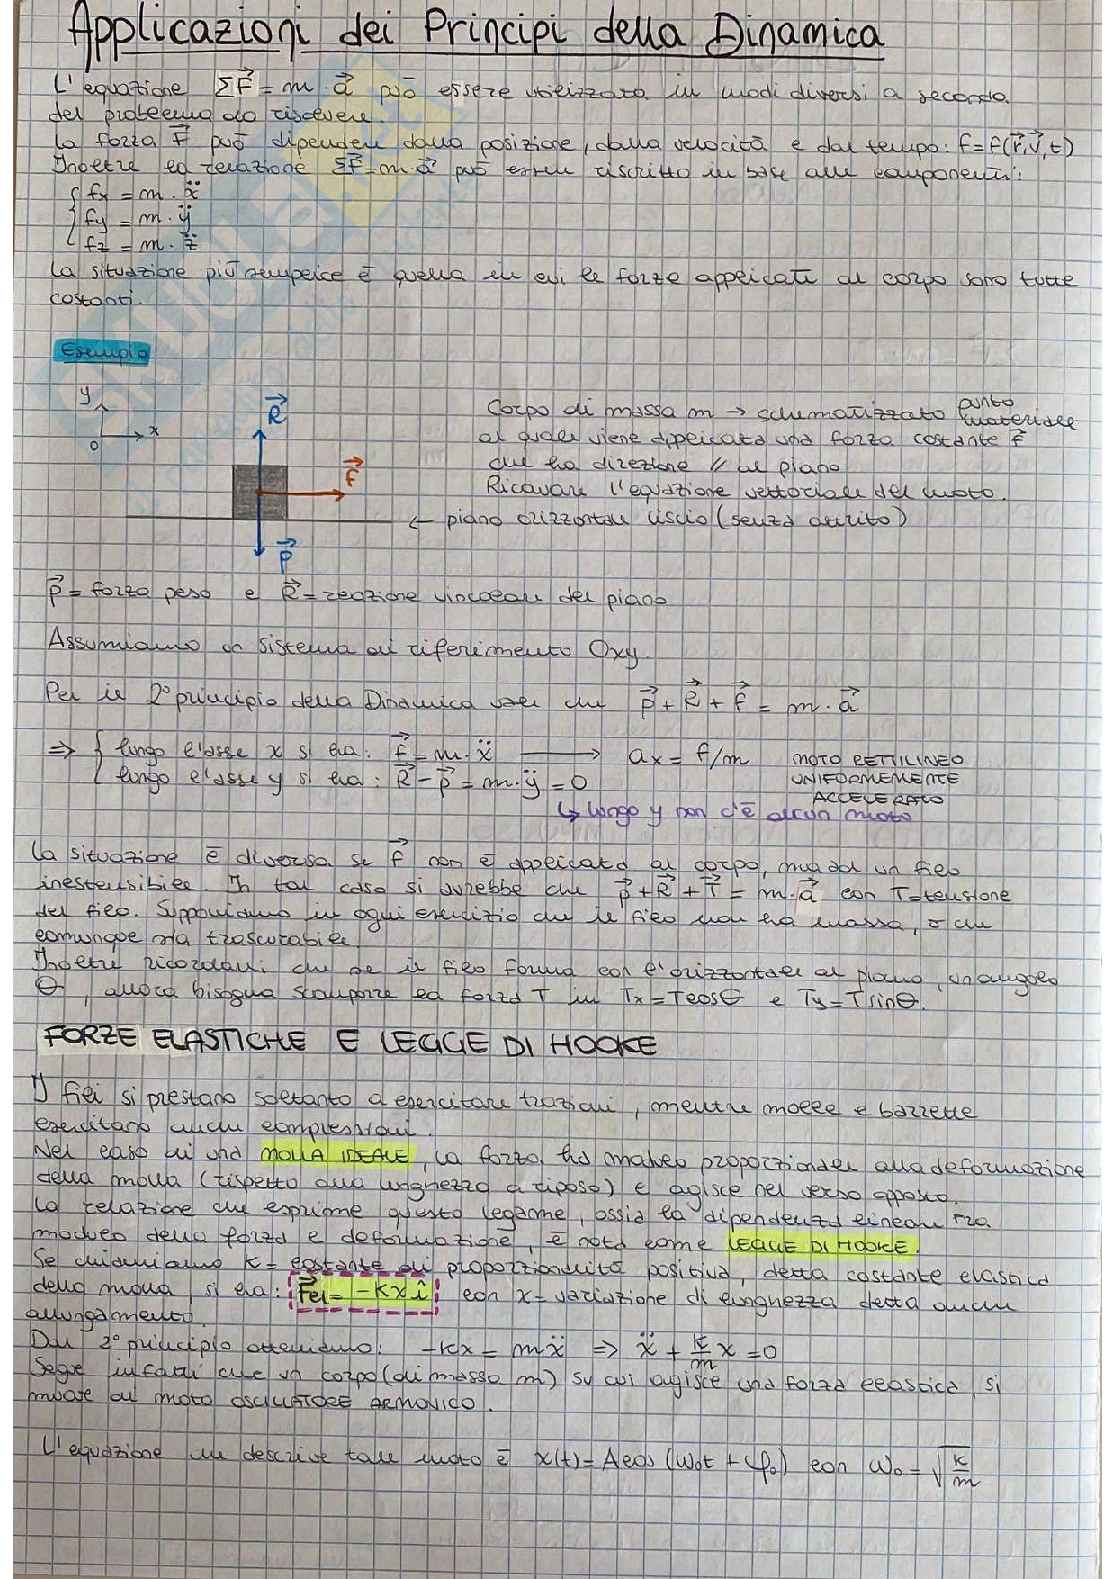 Applicazioni dei Principi della Dinamica
L'equazione ΣF⃗ = m · a⃗ può essere utilizzata in modi diversi a seconda
del problema da risolvere.
La forza F⃗ può dipendere dalla posizione, dalla velocità e dal tempo: f=f(r⃗,v⃗,t)
Inoltre la relazione ΣF⃗=m·a⃗ può essere riscritta in base alle componenti:
{ fx = m · ẍ
fy = m · ÿ
fz = m · z̈
La situazione più semplice è quella in cui le forze applicate al corpo sono tutte
costanti.
Esempio
y
x
0
R⃗
f⃗
P⃗
Corpo di massa m → schematizzato punto materiale
al quale viene applicata una forza costante f⃗
che ha direzione // al piano
Ricavare l'equazione vettoriale del moto.
← piano orizzontale liscio (senza attrito)
P⃗ = forza peso e R⃗ = reazione vincolare del piano
Assumiamo un sistema di riferimento Oxy.
Per il 2° principio della Dinamica vale che p⃗ + R⃗ + f⃗ = m · a⃗
⇒ { lungo l'asse x si ha: f⃗ = m·ẍ → ax = f/m MOTO RETTILINEO
lungo l'asse y si ha: R⃗ - p⃗ = m·ÿ = 0 UNIFORMEMENTE
ACCELERATO
↳ lungo y non c'è alcun moto
La situazione è diversa se f⃗ non è applicata al corpo, ma ad un filo
inestensibile. In tal caso si avrebbe che p⃗ + R⃗ + T⃗ = m·a⃗ con T=tensione
del filo. Supponiamo in ogni esercizio che il filo non ha massa, o che
comunque sia trascurabile.
Inoltre ricordati che se il filo forma con l'orizzontale al piano, un angolo
θ, allora bisogna scomporre la forza T in Tx=Tcosθ e Ty=Tsinθ.
FORZE ELASTICHE E LEGGE DI HOOKE
I fili si prestano soltanto a esercitare trazioni, mentre molle e barrette
esercitano anche compressioni.
Nel caso di una MOLLA IDEALE, la forza ha modulo proporzionale alla deformazione
della molla (rispetto alla lunghezza a riposo) e agisce nel verso opposto.
La relazione che esprime questo legame, ossia la dipendenza lineare tra
modulo della forza e deformazione, è nota come LEGGE DI HOOKE.
Se chiamiamo K= costante di proporzionalità positiva, detta costante elastica
della molla, si ha: F⃗el = -Kx î con x= variazione di lunghezza detta anche
allungamento.
Dal 2° principio otteniamo: -Kx = mẍ ⇒ ẍ + K/m x = 0
Segue infatti che un corpo (di massa m) su cui agisce una forza elastica, si
muove di moto OSCILLATORE ARMONICO.
L'equazione che descrive tale moto è x(t) = Acos (ω₀t + φ₀) con ω₀ = √K/m